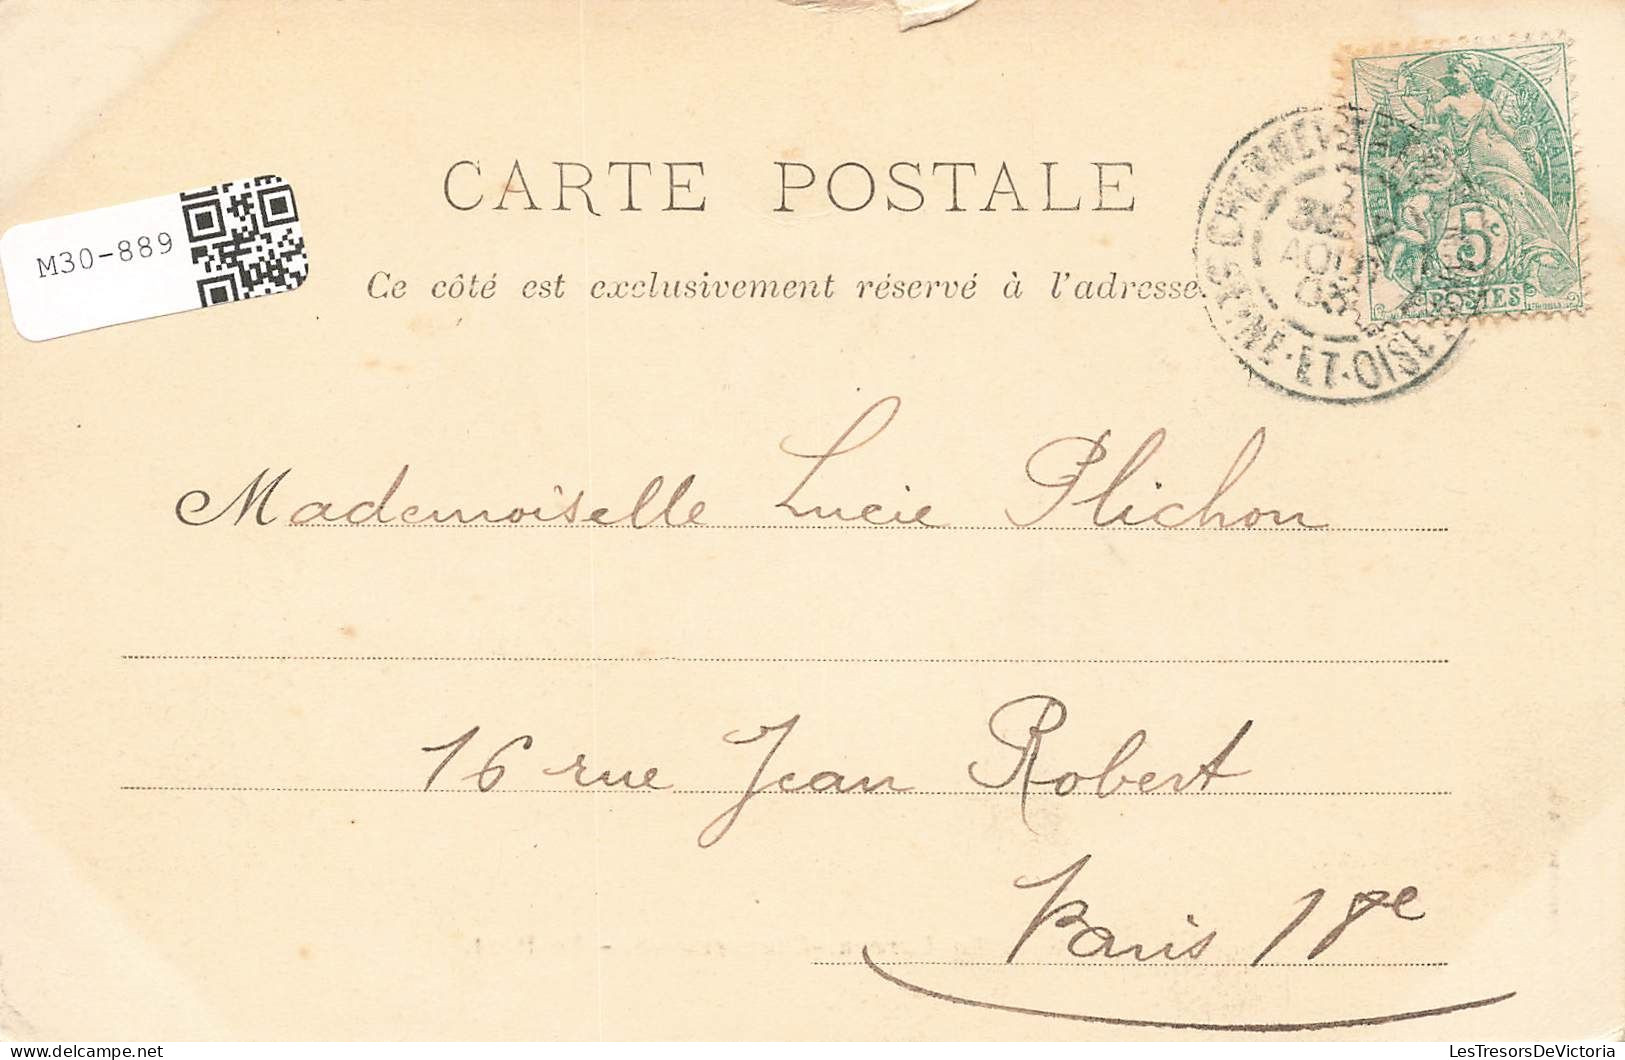 CARTE POSTALE
M30-889
Ce côté est exclusivement réservé à l'adresse.
RÉPUBLIQUE FRANÇAISE
5c
POSTES
AOUT
03
ET-OISE
Mademoiselle Lucie Plichon
16 rue Jean Robert
Paris 18e
LesTresorsDeVictoria